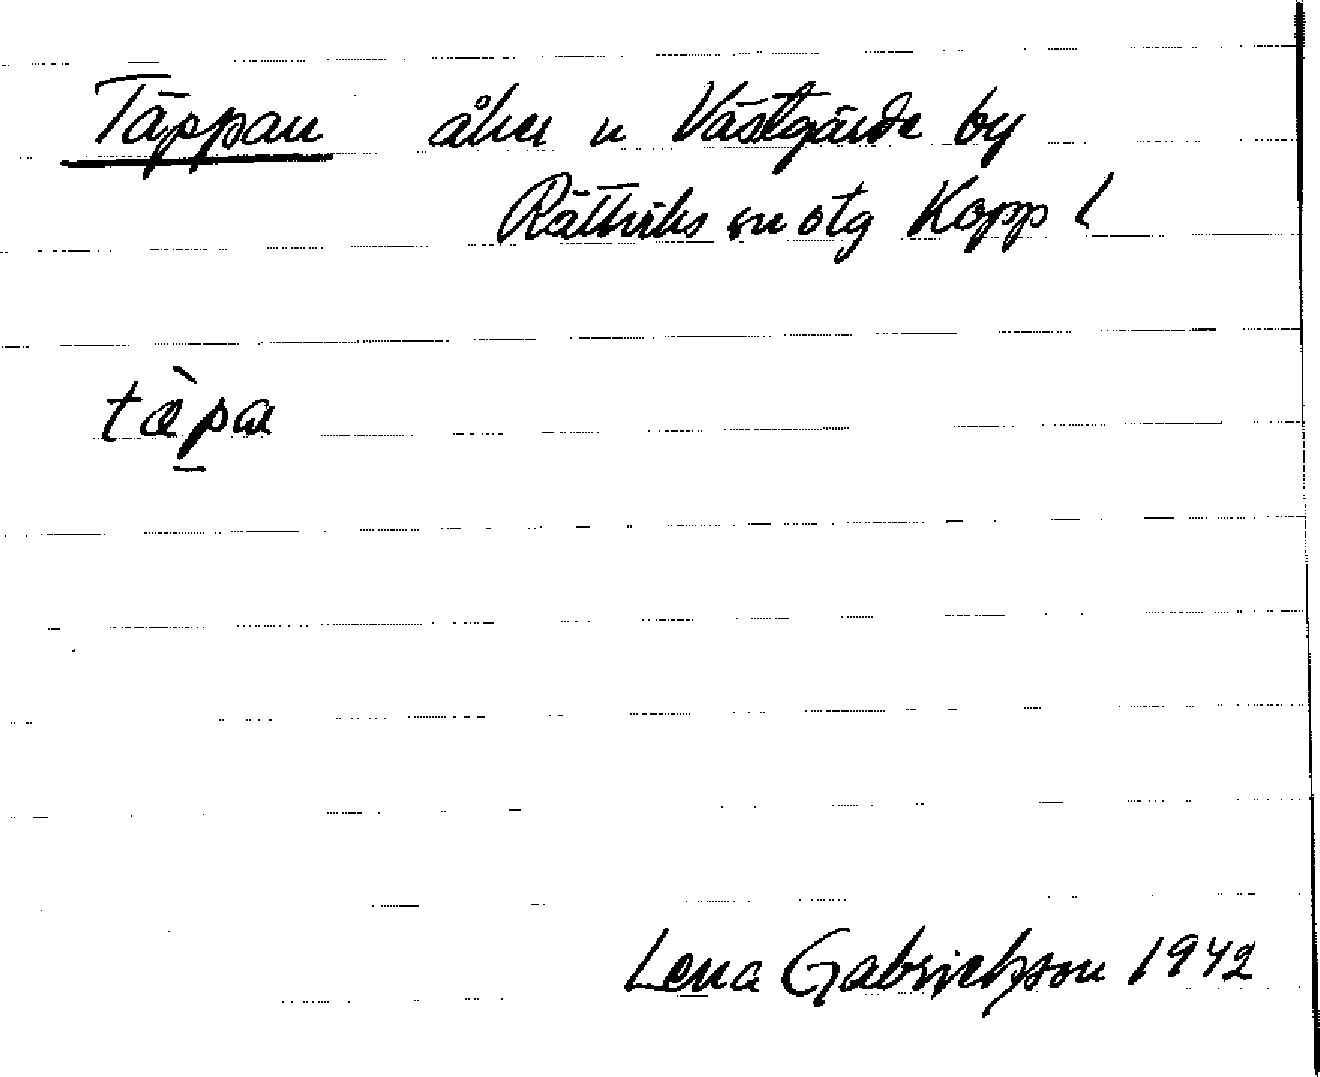 Täppan åker n Västgärde by
Rättviks sn otg Kopp l
tæ̀pa
Lena Gabrielsson 1942